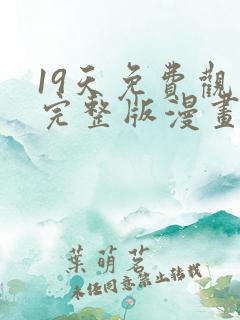 19天免費觀
完整版漫畫
葉萌茗
未经同意禁止转载